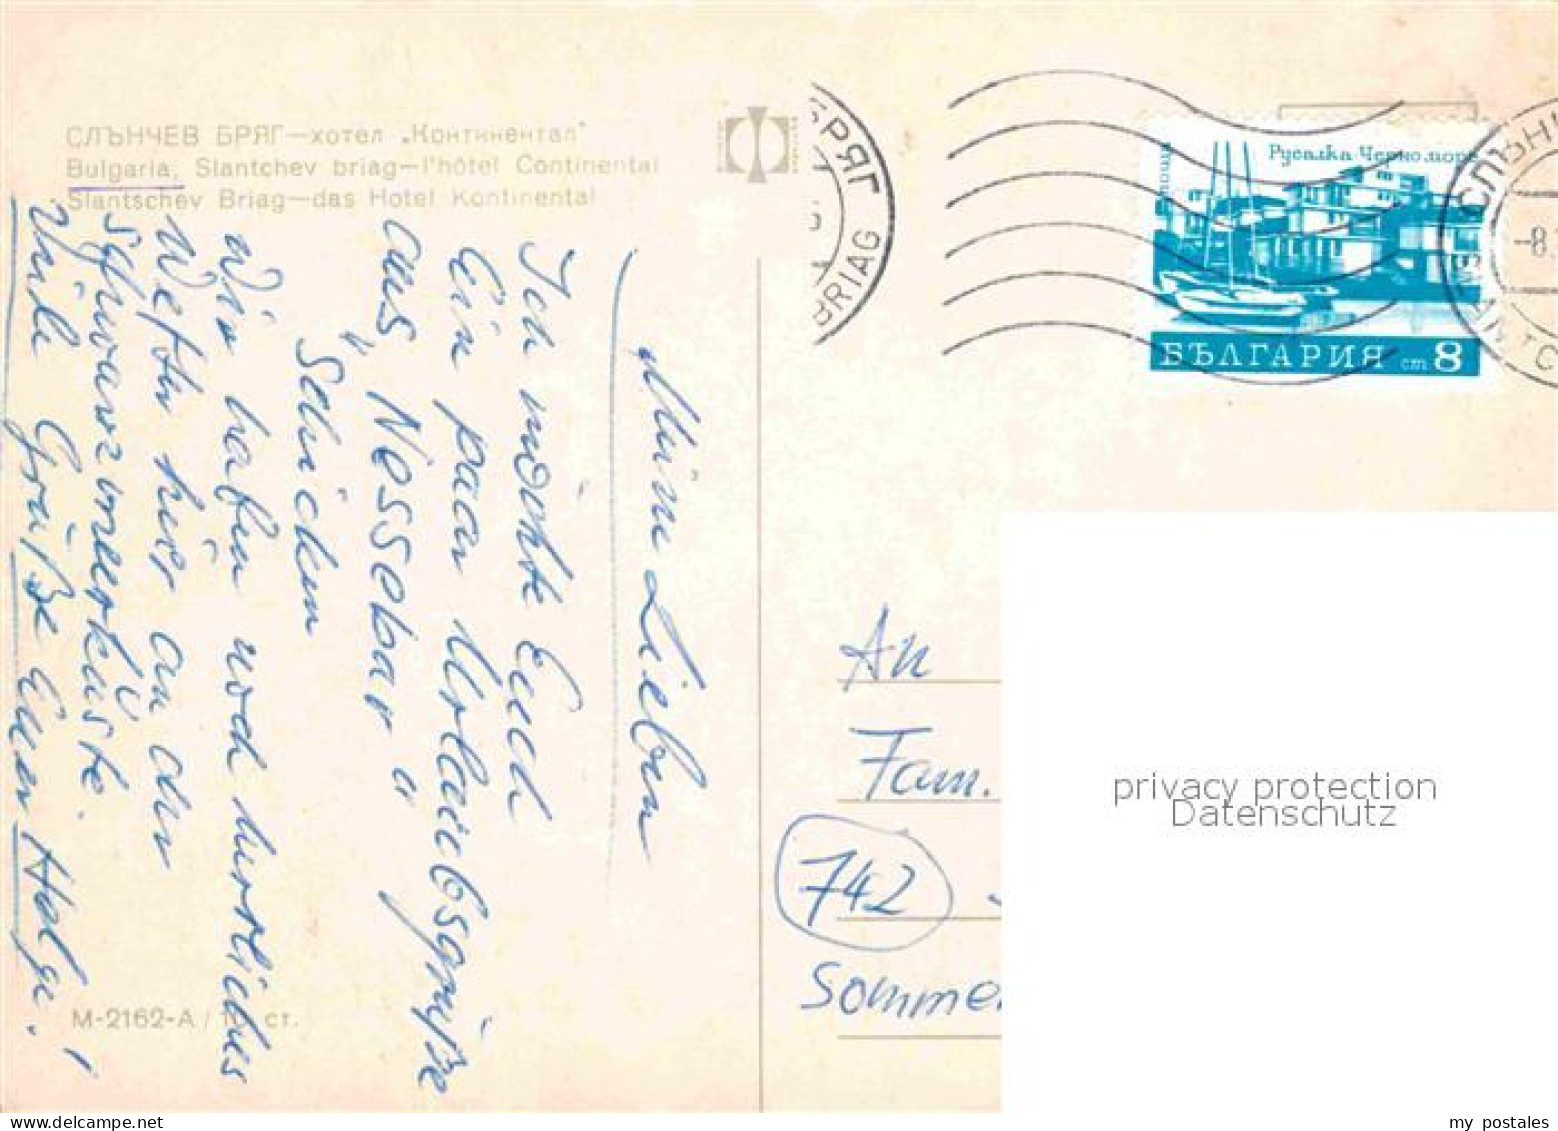 СЛЪНЧЕВ БРЯГ—хотел „Континентал“
Bulgaria, Slantchev briag—l'hôtel Continental
Slantschev Briag—das Hotel Kontinental
Meine Lieben
Ich möchte Euch
Ein paar Urlaubsgrüße
aus Nessebar
Schicken
Wir haben noch herrliches
Wetter hier an der
Schwarzmeerküste.
Viele Grüße Euer Holge.!
М-2162-А / ст.
БРЯГ
BRIAG
Русалка Черно море
БЪЛГАРИЯ ст 8
СЛЪНЧ
-8.
An
Fam.
742
Somme
privacy protection
Datenschutz
my postales